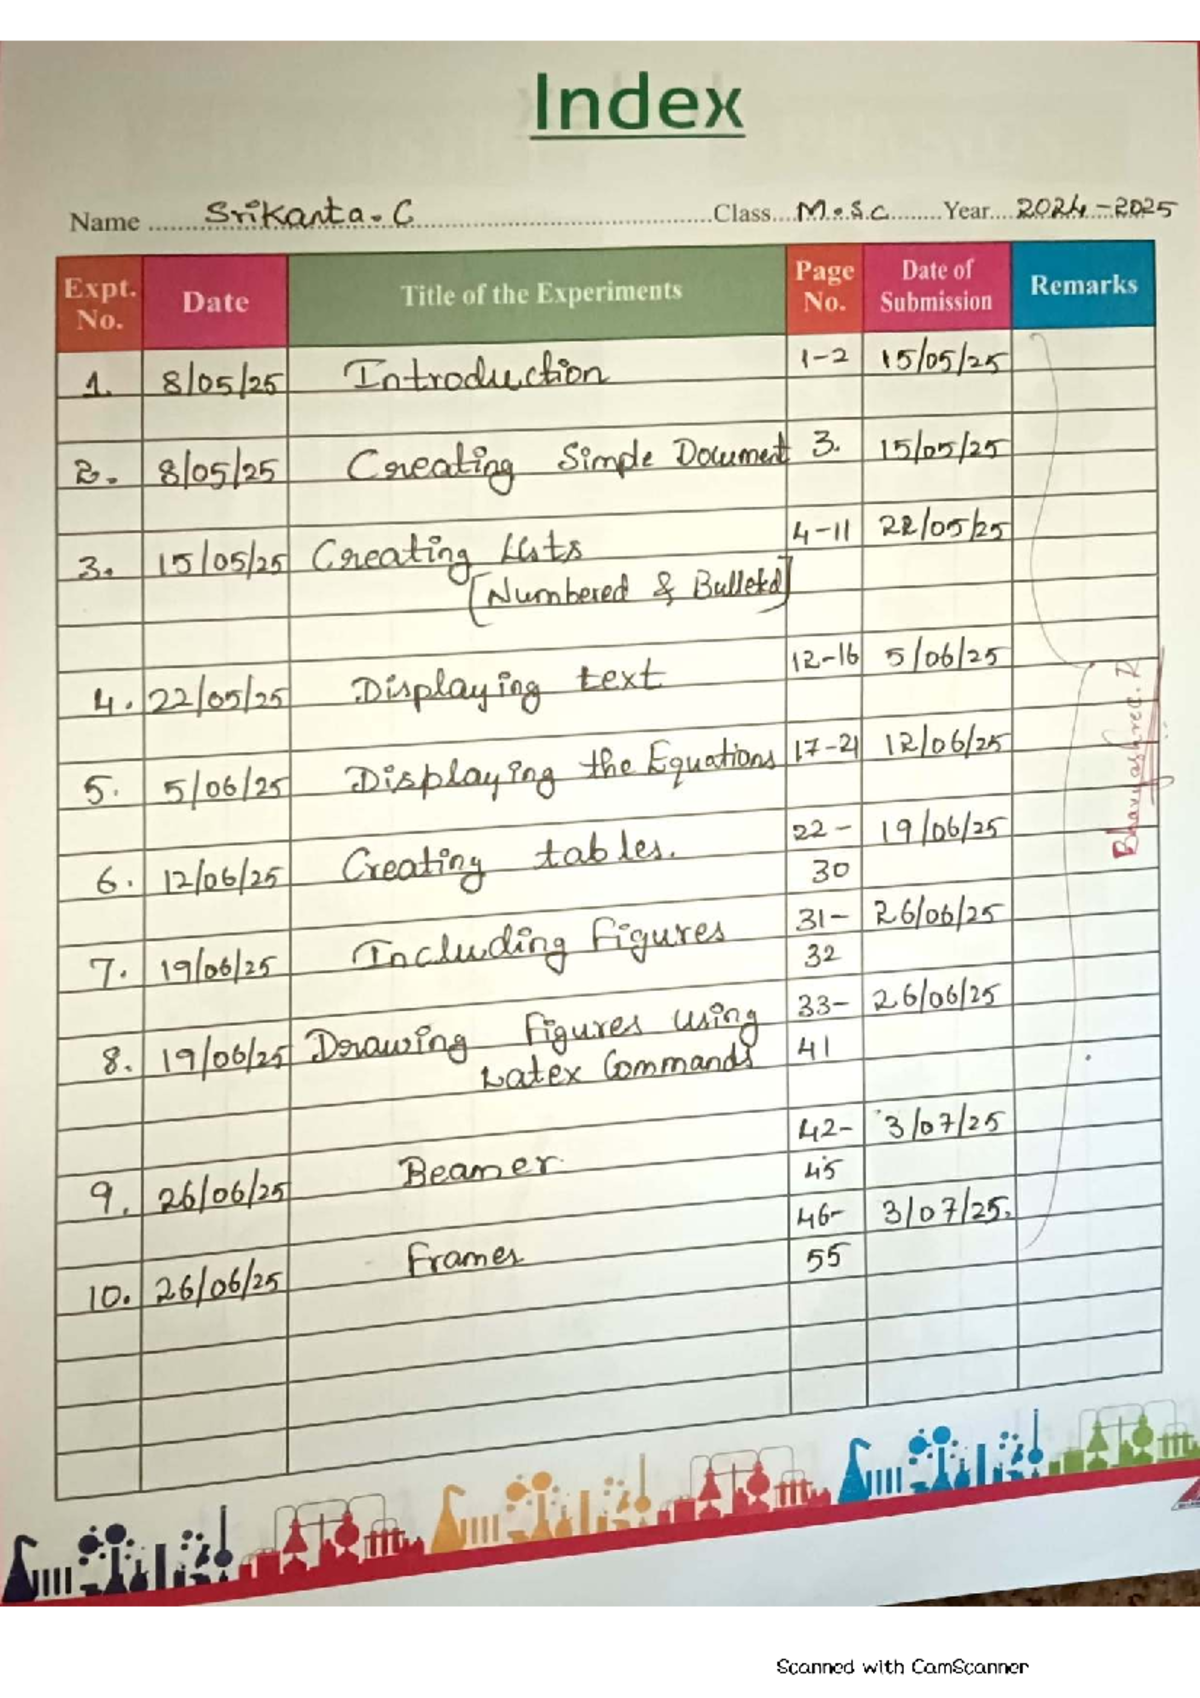 Index
Name Srikanta. C Class M.Sc Year 2024-2025
Expt. No. Date Title of the Experiments Page No. Date of Submission Remarks
1. 8/05/25 Introduction 1-2 15/05/25
2. 8/05/25 Creating Simple Document 3. 15/05/25
3. 15/05/25 Creating Lists 4-11 22/05/25
[Numbered & Bulleted]
4. 22/05/25 Displaying text 12-16 5/06/25
5. 5/06/25 Displaying the Equations 17-21 12/06/25
6. 12/06/25 Creating tables. 22-30 19/06/25
7. 19/06/25 Including Figures 31-32 26/06/25
8. 19/06/25 Drawing Figures using 33-41 26/06/25
Latex Commands
9. 26/06/25 Beamer 42-45 3/07/25
10. 26/06/25 Frames 46-55 3/07/25.
Bhavyashree. R
Scanned with CamScanner